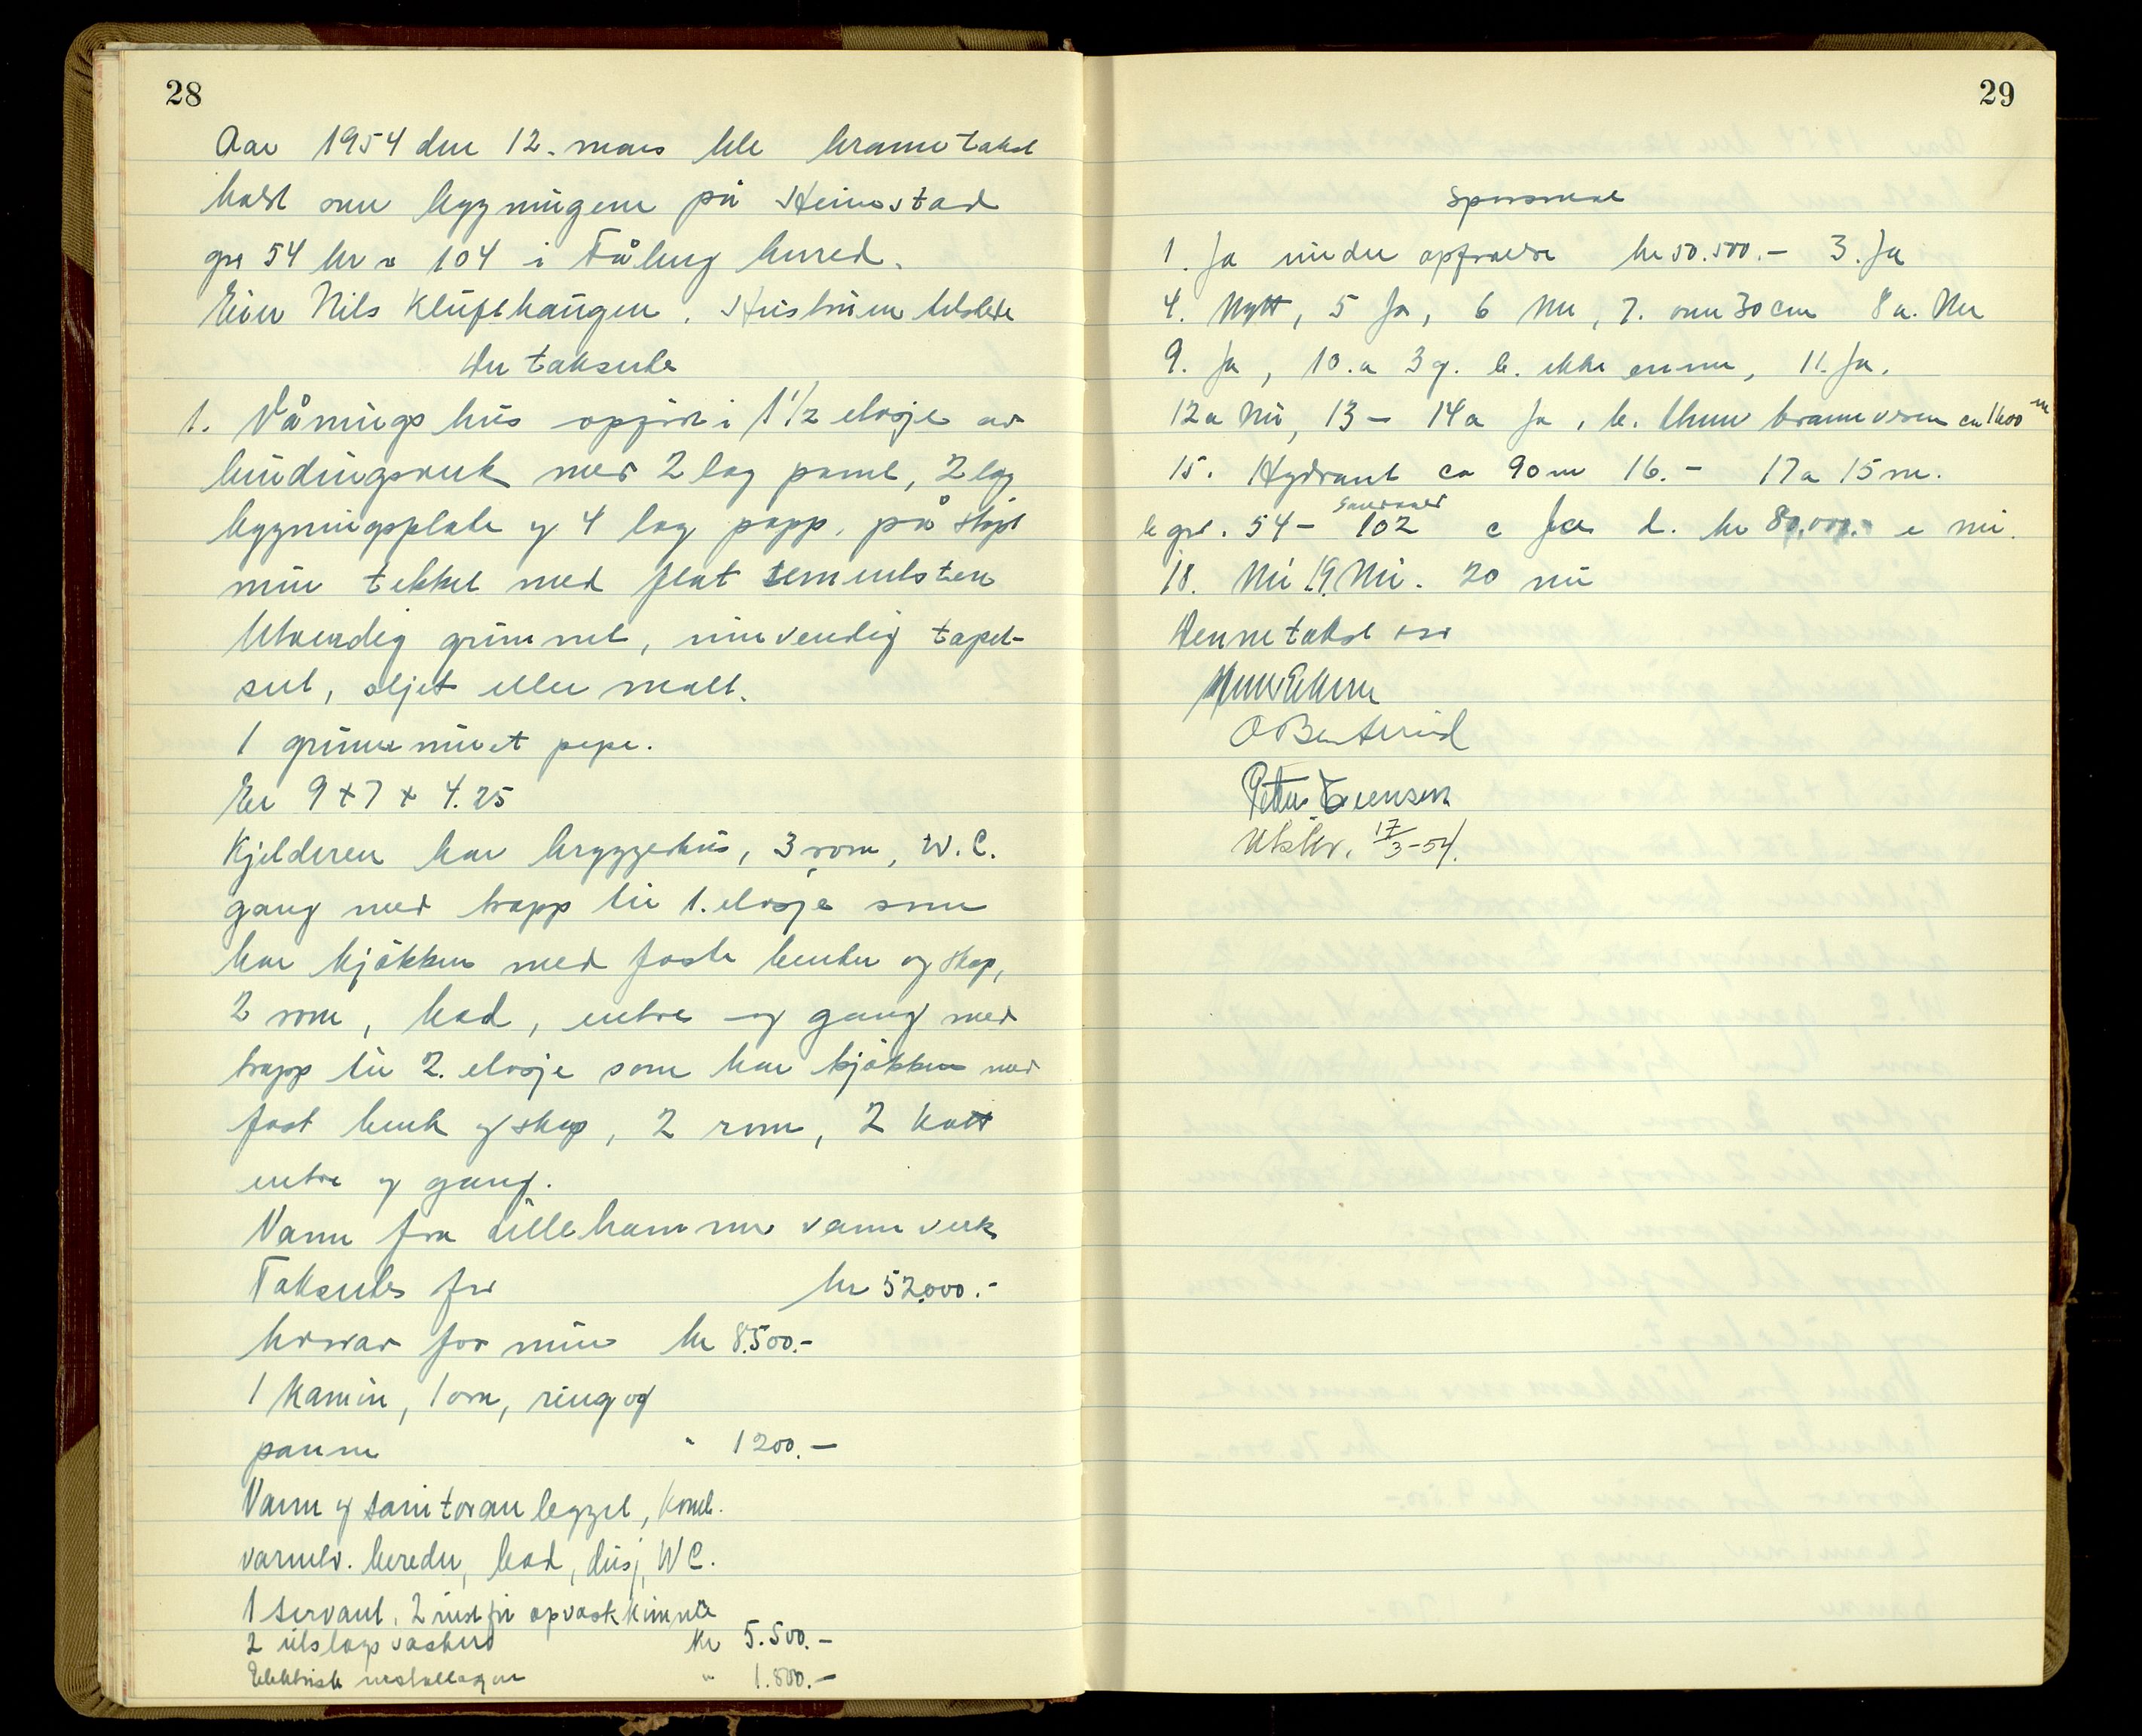 28
Aar 1954 den 12. mars ble branntakst
holdt over bygningene på Heimstad
gnr 54 br n 104 i Fåberg herred.
Eier Nils Kluftshaugen. Hustruen tilstede
Der takserte
1. Våningshus opført i 1 1/2 etasje av
bindingsverk med 2 lag panel, 2 lag
bygningsplate og 4 lag papp, på støpt
mur tekket med flat sementsten
Utvendig grunnet, innvendig tapet-
sert, oljet eller malt.
1 grunnmuret pepe.
Er 9 + 7 + 4.25
Kjelderen har bryggerhus, 3 rom, W.C.
gang med trapp til 1. etasje som
har kjøkken med faste benker og skap,
2 rom, bad, entre og gang med
trapp til 2. etasje som har kjøkken med
fast benk og skap, 2 rom, 2 kott
entre og gang.
Vann fra Lillehammer vannverk
Takseres for kr 52.000.-
hvorav for mur kr 8.500.-
1 kamin, 1 ovn, ring og
panne " 1200.-
Vann og sanitæranlegget, komb.
varmtv. bereder, bad, dusj, WC.
1 servant, 2 rustfri opvaskkummer
2 utslagsvasker kr 5.500.-
Elektrisk installasjon " 1.800.-
29
Spørsmål
1. Ja under opførelse kr 50.500.- 3. Ja
4. Nytt, 5 Ja, 6 Nei, 7. over 30 cm 8a. Nei
9. Ja, 10.a 3 g. b. ikke ennu, 11. Ja.
12a Nei, 13 - 14a Ja, b. Lhmr brannvesen ca 1600 m
15. Hydrant ca 90 m 16. - 17a 15 m.
b gnr. 54 - 102 c Ja d. kr 80.000.- e nei.
18. Nei 19. Nei. 20 nei
Denne takst
O Benterud
Petter Evensen
Utskr. 17/3-54.